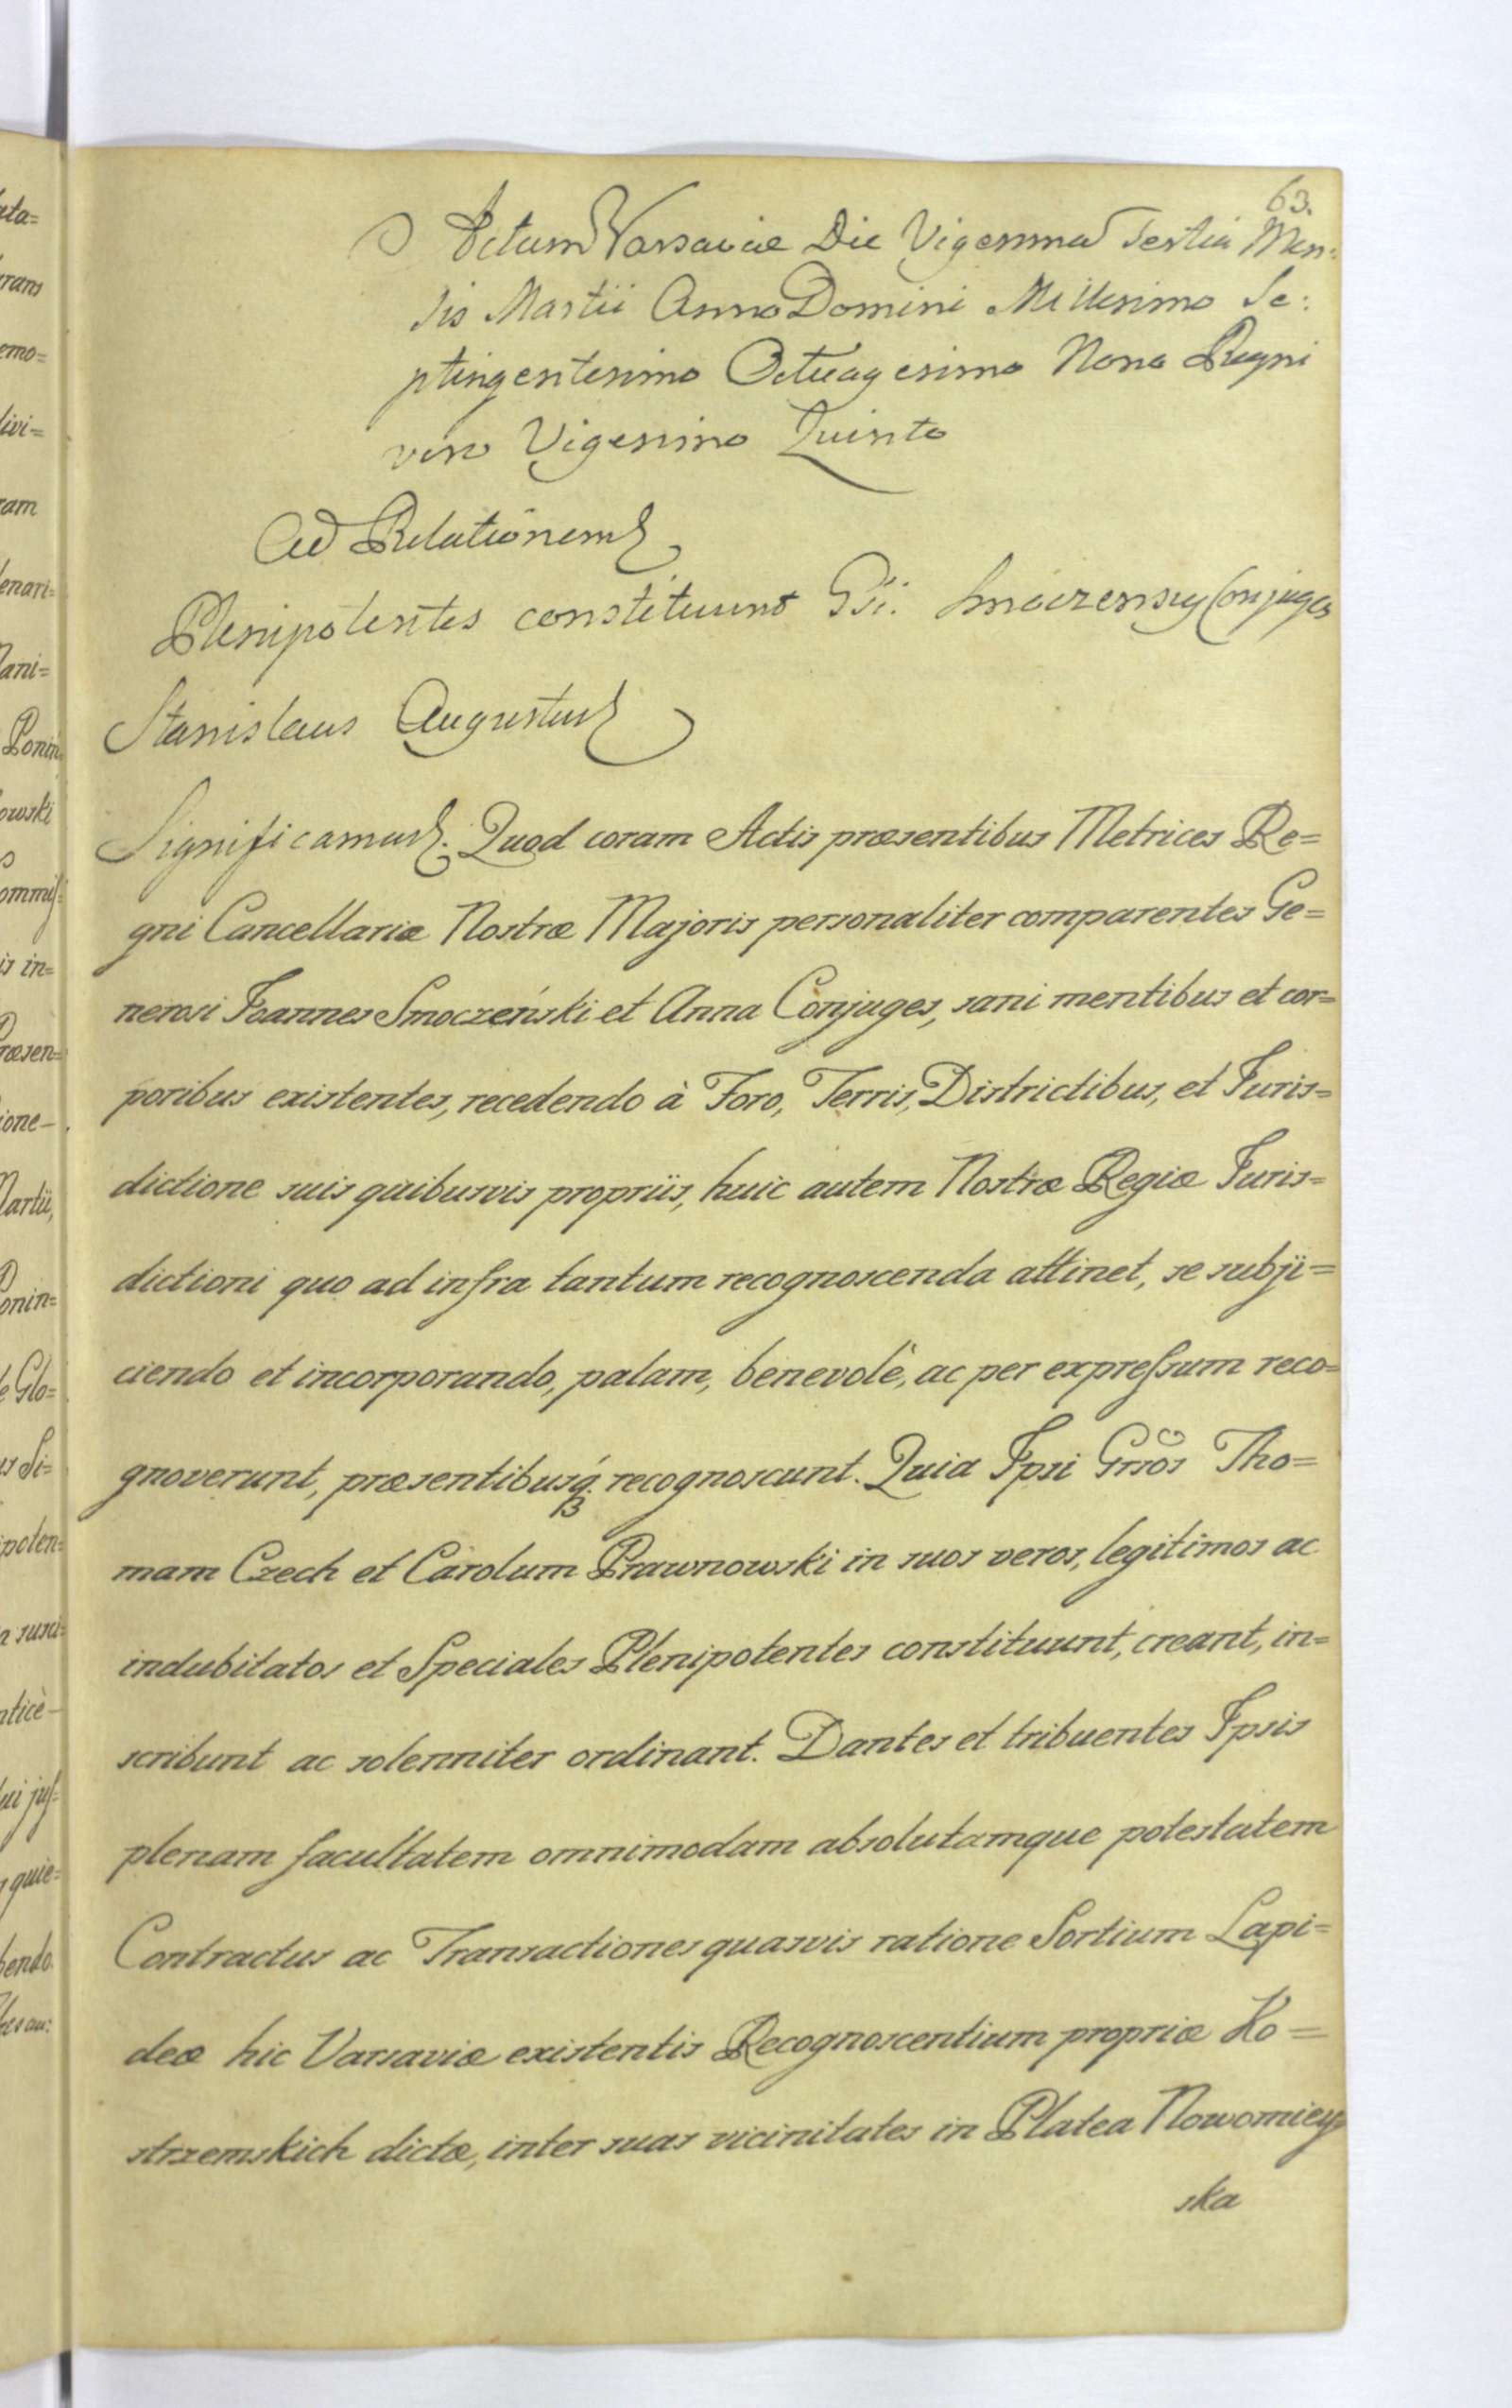 63.
Actum Varsaviae Die Vigesima Tertia Men:
sis Martii Anno Domini Millesimo Se:
ptingentesimo Octuagesimo Nono Regni
vero Vigesimo Quinto
Ad Relationem
Plenipotentes constituunt Gsi. Smoczenscy Conjuges
Stanislaus Augustus
Significamus. Quod coram Actis præsentibus Metrices Re=
gni Cancellariæ Nostræ Majoris personaliter comparentes Ge=
nerosi Joannes Smoczeński et Anna Conjuges, sani mentibus et cor=
poribus existentes, recedendo à Foro, Terris, Districtibus, et Juris=
dictione suis quibusvis propriis, huic autem Nostræ Regiæ Juris=
dictioni quo ad infra tantum recognoscenda attinet, se subji=
ciendo et incorporando, palam, benevolè, ac per expressum reco=
gnoverunt, præsentibusq. recognoscunt. Quia Ipsi Grsos Tho=
mam Czech et Carolum Prawnowski in suos veros, legitimos ac
indubitatos et Speciales Plenipotentes constituunt, creant, in=
scribunt ac solenniter ordinant. Dantes et tribuentes Ipsis
plenam facultatem omnimodam absolutamque potestatem
Contractus ac Transactiones quasvis ratione Sortium Lapi=
deæ hic Varsaviæ existentis Recognoscentium propriæ Ko=
strzemskich dictæ, inter suas vicinitates in Platea Nowomiey
ska